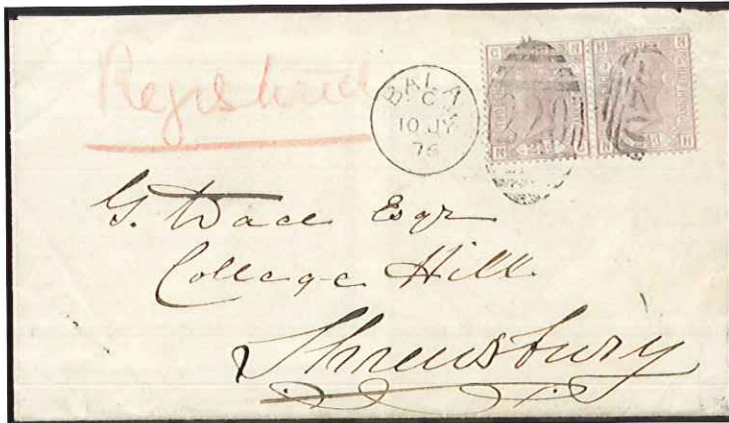 Registered
BALA
C
10 JY
76
G. Wace Esqr
College Hill
Shrewsbury